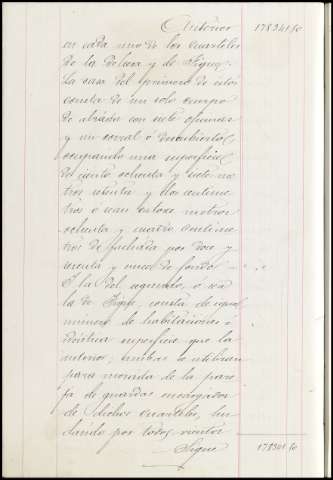 Anterior 178341 50
en cada uno de los cuarteles
de la Dehesa y de Sigue,
La casa del primero de estos
consta de un solo cuerpo
de alzada con siete oficinas
y un corral ó descubierto,
ocupando una superficie
de ciento ochenta y siete me
tros setenta y dos centíme
tros ó sean catorce metros
ochenta y cuatro centíme
tros de fachada por doce y
sesenta y cinco de fondo —
Y la del segundo, ó sea
la de Sigue, consta de igual
número de habitaciones é
idéntica superficie que la
anterior, ambas se utilizan
para morada de la pare
ja de guardas encargados
de dichos cuarteles, lin
dando por todos vientos
Sigue 178341 50